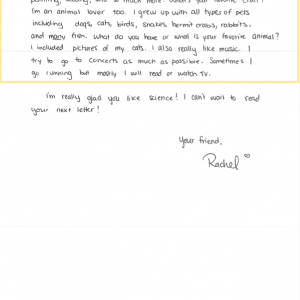 painting, baking, and so much more. What's your favorite craft?
I'm an animal lover too. I grew up with all types of pets
including dogs, cats, birds, snakes, hermit crabs, rabbits,
and many fish. What do you have or what is your favorite animal?
I included pictures of my cats. I also really like music. I
try to go to concerts as much as possible. Sometimes I
go running but mostly I will read or watch TV.
I'm really glad you like science! I can't wait to read
your next letter!
Your friend,
Rachel